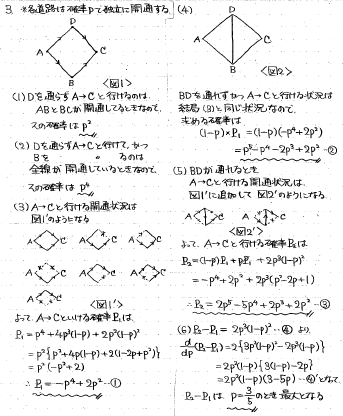 3. ※各道路は確率pで独立に開通する
D
A
C
B
<図1>
(1) Dを通らずA→Cと行けるのは
ABとBCが開通してるときなので、
その確率は p²
(2) Dを通らずA→Cと行けて、かつ
Bを 〃 るのは
全線が開通しているときなので、
その確率は p⁴
(3) A→Cと行ける開通状況は
図1'のようになる
A C A C A C
A C A C A C
A C
<図1'>
よって A→Cといける確率P₁は、
P₁ = p⁴ + 4p³(1-p) + 2p²(1-p)²
= p²{p² + 4p(1-p) + 2(1-2p+p²)}
= p²(-p²+2)
∴ P₁ = -p⁴ + 2p² …①
(4)
D
A
C
B
<図2>
BDを通れずかつ A→Cと行ける状況は
結局(3)と同じ状況なので、
求める確率は
(1-p)×P₁ = (1-p)(-p⁴+2p²)
= p⁵ - p⁴ - 2p³ + 2p² …②
(5) BDが通れるとき
A→Cと行ける開通状況は、
図1'に追加して 図2'のようになる
A C A C
<図2'>
よって、A→Cと行ける確率P₂は
P₂ = (1-p)P₁ + pP₁ + 2p³(1-p)²
= -p⁴ + 2p² + 2p³(p²-2p+1)
∴ P₂ = 2p⁵ - 5p⁴ + 2p³ + 2p² …③
(6) P₂-P₁ = 2p³(1-p)² …④ より
d/dp (P₂-P₁) = 2{3p²(1-p)² - 2p³(1-p)}
= 2p²(1-p){3(1-p)-2p}
= 2p²(1-p)(3-5p) …④' となって、
P₂-P₁は、p = 3/5 のとき最大となる